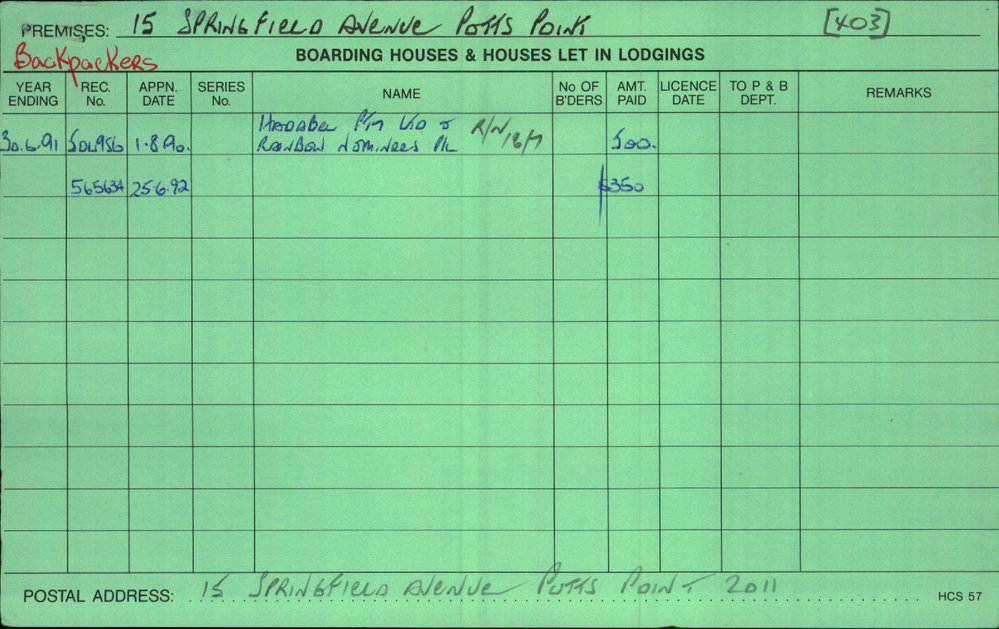 PREMISES: 15 SPRINGFIELD AVENUE POTTS POINT [403]
Backpackers BOARDING HOUSES & HOUSES LET IN LODGINGS
YEAR ENDING REC. No. APPN. DATE SERIES No. NAME No OF B'DERS AMT. PAID LICENCE DATE TO P & B DEPT. REMARKS
30.6.91 1.8.90. P/M LTD & R/N/18/7 500.
RAINBOW NOMINEES P/L
565634 25.6.92 $350
POSTAL ADDRESS: 15 SPRINGFIELD AVENUE POTTS POINT 2011 HCS 57